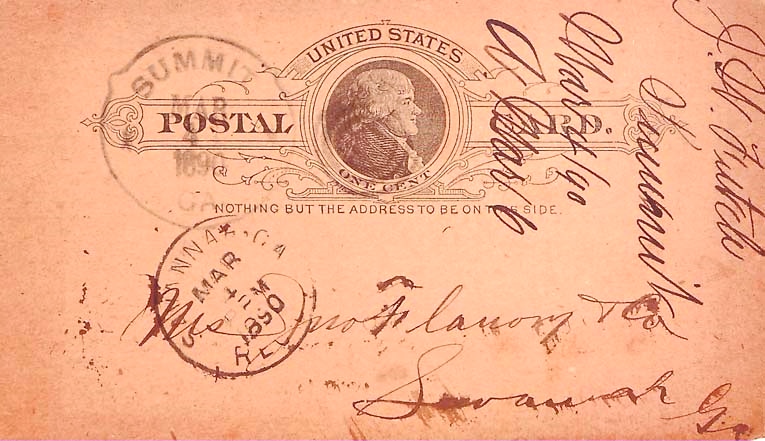 UNITED STATES
POSTAL CARD.
ONE CENT
NOTHING BUT THE ADDRESS TO BE ON THIS SIDE.
SUMMIT
MAR
4
1890
GA
SAVANNAH, GA
MAR
4
1890
REC'D
Mrs Jno Flannory & Co
Savanah Ga
J. H. Futch
Summit
Mar 4/90
A Mar 6